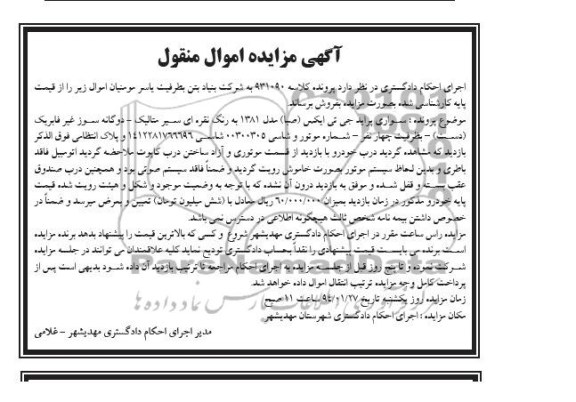 آگهی مزایده اموال منقول
اجرای احکام دادگستری در نظر دارد پرونده کلاسه ۹۳۱۰۹۰ به شرکت بنیاد بتن بطرفیت یاسر مومنیان اموال زیر را از قیمت
پایه کارشناسی شده بصورت مزایده بفروش برساند.
موضوع پرونده : سواری پراید جی تی ایکس (صبا) مدل ۱۳۸۱ به رنگ نقره ای سیر متالیک - دوگانه سوز غیر فابریک
(دستی) - بظرفیت چهار نفر - شماره موتور و شاسی ۰۰۳۰۰۳۰۵ شاسی ۱۴۱۲۲۸۱۷۶۶۶۹۶ و پلاک انتظامی فوق الذکر
بازدید که مشاهده گردید درب خودرو با بازدید از قسمت موتوری و آزاد ساختن درب کاپوت ملاحضه گردید اتومبیل فاقد
باطری و بدین لحاظ سیستم موتور بصورت خاموش رویت گردید و ضمناً فاقد سیستم صوتی بود و همچنین درب صندوق
عقب بسته و قفل شده و موفق به بازدید درون آن نشده که با توجه به وضعیت موجود و شکل و هیئت رویت شده قیمت
پایه خودرو مذکور در زمان بازدید بمیزان ۶۰/۰۰۰/۰۰۰ ریال معادل با (شش میلیون تومان) تعیین و بعرض میرسد و ضمناً در
خصوص داشتن بیمه نامه شخص ثالث هیچگونه اطلاعی در دسترس نمی باشد.
مزایده راس ساعت مقرر در اجرای احکام دادگستری مهدیشهر شروع و کسی که بالاترین قیمت را پیشنهاد بدهد برنده مزایده
است برنده می بایست قیمت پیشنهادی را نقداً بحساب دادگستری تودیع نماید کلیه علاقمندان می توانند در جلسه مزایده
شرکت نموده و تا پنج روز قبل از جلسه مزایده به اجرای احکام مراجعه تا ترتیب بازدید آن داده شود بدیهی است پس از
پرداخت کامل وجه مزایده ترتیب انتقال اموال داده خواهد شد.
زمان مزایده روز یکشنبه تاریخ ۹۴/۰۱/۲۷ ساعت ۱۱ صبح
مکان مزایده : اجرای احکام دادگستری شهرستان مهدیشهر
مدیر اجرای احکام دادگستری مهدیشهر - غلامی
ParsNamadData